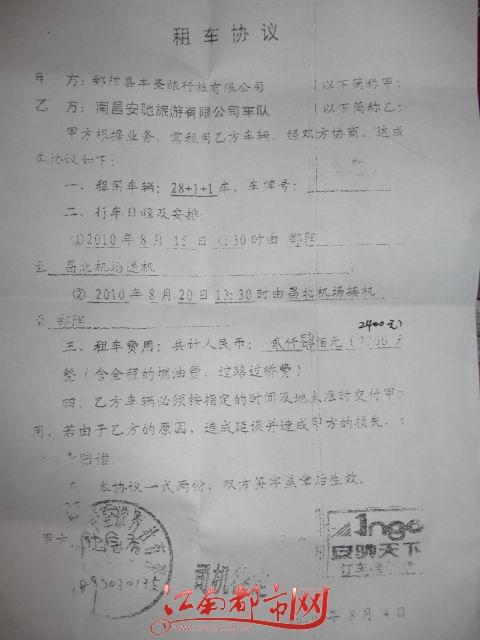 租车协议
方：鄱阳县丰圣旅行社有限公司 （以下简称甲：
乙 方：南昌安驰旅游有限公司车队 （以下简称乙：
甲方根据业务，需租用乙方车辆，经双方协商，达成
车协议如下：
一、租用车辆：28+1+1车，车牌号：
二、行车日程及安排：
①2010年8月15日 :30时由 鄱阳
至 昌北机场送机 ；
② 2010年8月20日13:30时由昌北机场接机
至 鄱阳
2400元）
三、租车费用：共计人民币：贰仟肆佰元（ 00元
整（含全程的燃油费、过路过桥费）
四、乙方车辆必须按指定的时间及地点准时交付甲方
用，若由于乙方的原因，造成延误并造成甲方的损失，
赔偿
本协议一式两份，双方签字盖章后生效。
甲方
安驰天下
订车
司机
江南都市网
年8月4日